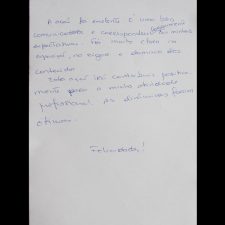 A ação foi excelente é uma boa
comunicadora e correspondeu as minhas
expectativas. Foi muito clara na
exposição, no rigor e domínio dos
conteúdos.
Esta ação irá contribuir positiva
mente para a minha atividade
profissional. As dinâmicas foram
ótimas.
Felicidades!